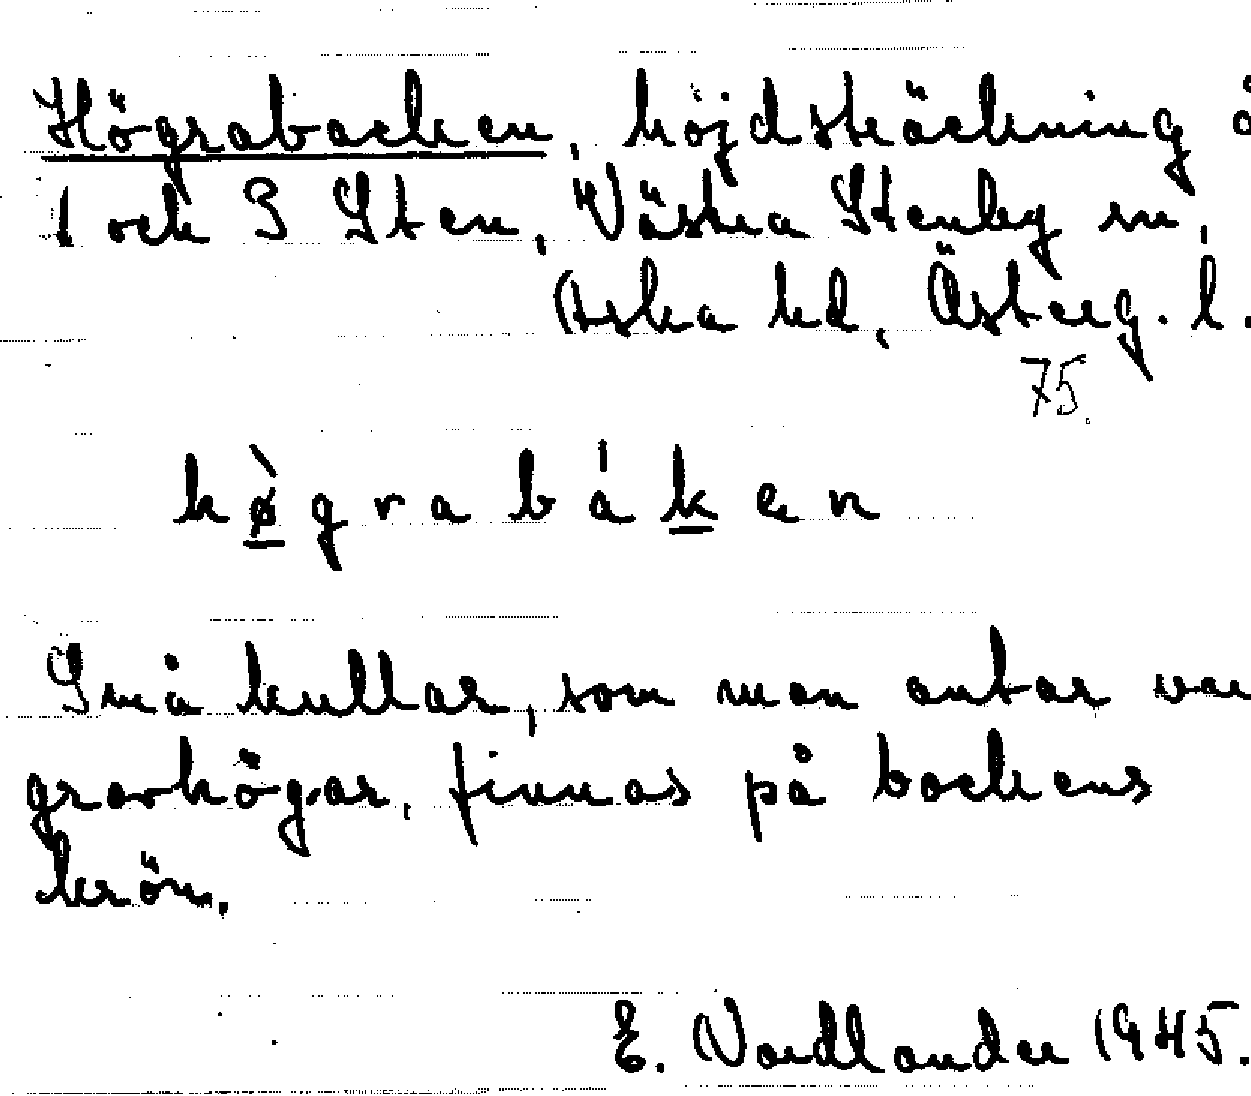 Högrabacken, höjdsträckning å
1 och 3 Sten, Västra Stenby sn,
Aska hd, Österg. l.
75.
hø̀grabåken
Små kullar, som man antar var
gravhögar, finnas på backens
krön.
E. Nordlander 1945.